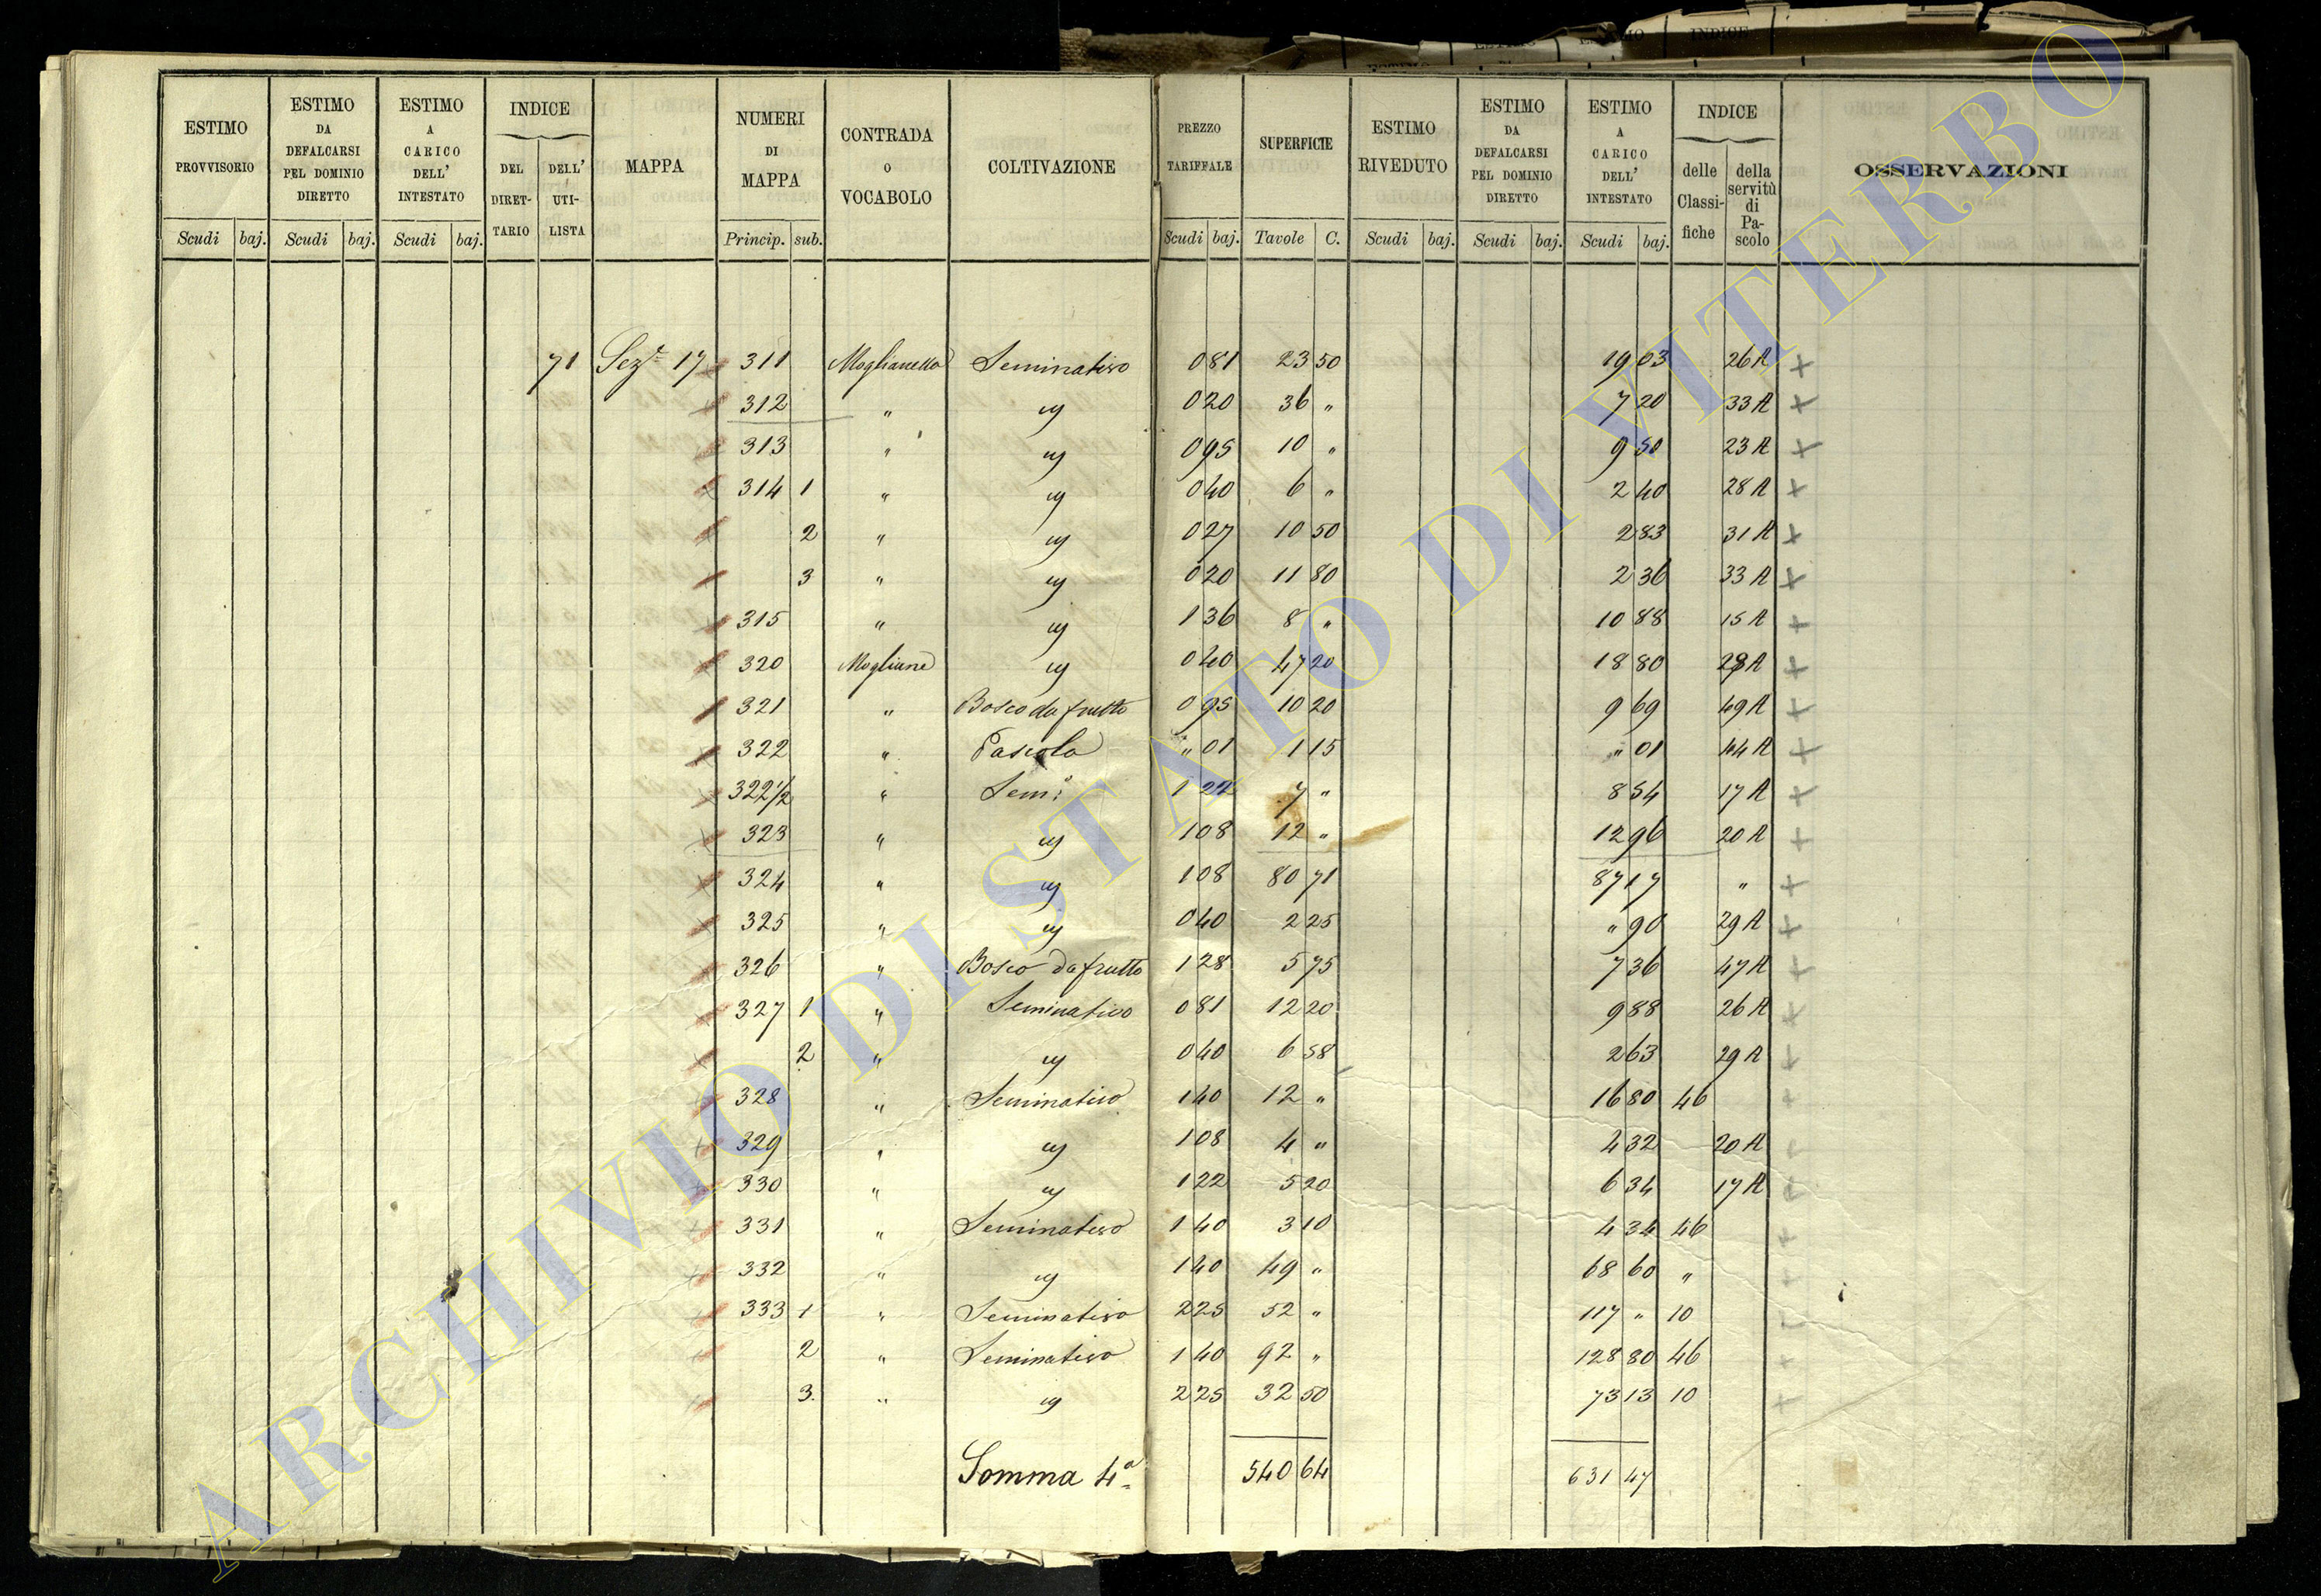 ESTIMO PROVVISORIO | ESTIMO DA DEFALCARSI PEL DOMINIO DIRETTO | ESTIMO A CARICO DELL' INTESTATO | INDICE DEL DIRETTARIO | DELL' UTILISTA | MAPPA | NUMERI DI MAPPA | CONTRADA O VOCABOLO | COLTIVAZIONE | PREZZO TARIFFALE | SUPERFICIE | ESTIMO RIVEDUTO | ESTIMO DA DEFALCARSI PEL DOMINIO DIRETTO | ESTIMO A CARICO DELL' INTESTATO | INDICE delle Classifiche | della servitù di Pascolo | OSSERVAZIONI
Scudi baj. Scudi baj. Scudi baj. Princip. sub. Scudi baj. Tavole C. Scudi baj. Scudi baj. Scudi baj.
71 Sezе 17 311 Moglianella Seminativo 0 81 23 50 19 03 26 A
312 " id 0 20 36 " 7 20 33 A
313 " id 0 95 10 " 9 50 23 A
314 1 " id 0 40 6 " 2 40 28 A
2 " id 0 27 10 50 2 83 31 A
3 " id 0 20 11 80 2 36 33 A
315 " id 1 36 8 " 10 88 15 A
320 Mogliane id 0 40 47 20 18 80 29 A
321 " Bosco da frutto 0 95 10 20 9 69 49 A
322 " Pascolo " 01 1 15 " 01 44 A
322 1/2 " Semo 1 22 7 " 8 54 17 A
323 " id 1 08 12 " 12 96 20 A
324 " id 1 08 80 71 87 17 "
325 " id 0 40 2 25 " 90 29 A
326 " Bosco da frutto 1 28 5 75 7 36 47 A
327 1 " Seminativo 0 81 12 20 9 88 26 A
2 " id 0 40 6 58 2 63 29 A
328 " Seminativo 1 40 12 " 16 80 46
329 " id 1 08 4 " 4 32 20 A
330 " id 1 22 5 20 6 34 17 A
331 " Seminativo 1 40 3 10 4 34 46
332 " id 1 40 49 " 68 60 "
333 1 " Seminativo 2 25 52 " 117 " 10
2 " Seminativo 1 40 92 " 128 80 46
3 " id 2 25 32 50 73 13 10
Somma 4a 540 64 631 47
ARCHIVIO DI STATO DI VITERBO